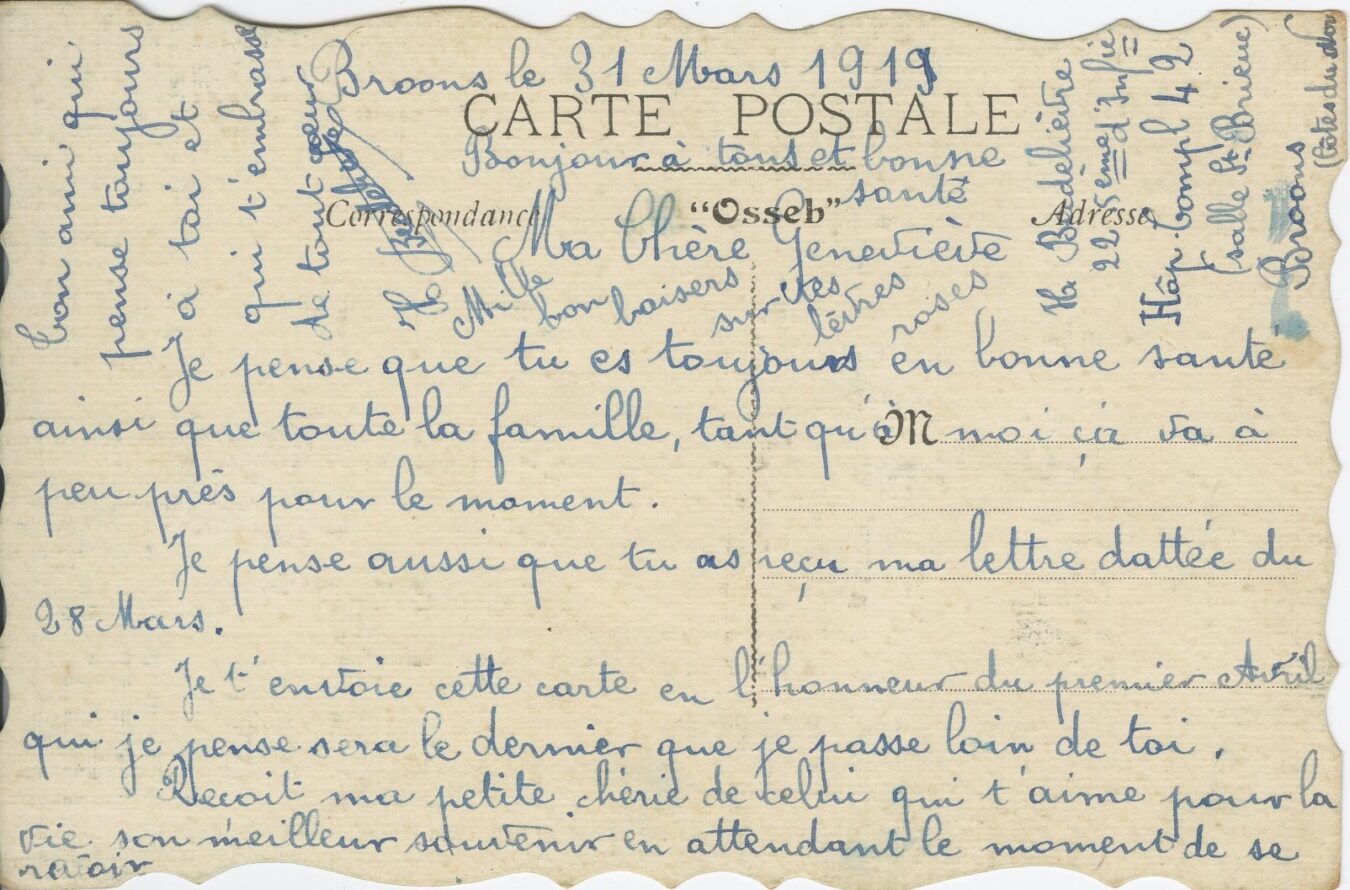 Broons le 31 Mars 1919
CARTE POSTALE
Bonjour à tous et bonne
santé
Correspondance
"Osseb"
Adresse
Ma Chère Geneviève
Mille
bon baisers
sur tes
lèvres
roses
Je pense que tu es toujours en bonne santé
ainsi que toute la famille, tant qu'à moi ça va à
M
peu près pour le moment.
Je pense aussi que tu as reçu ma lettre dattée du
28 Mars.
Je t'envoie cette carte en l'honneur du premier Avril
qui je pense sera le dernier que je passe loin de toi.
Recoit ma petite chérie de celui qui t'aime pour la
vie son meilleur souvenir en attendant le moment de se
revoir
bon ami qui
pense toujours
à toi et
qui t'embrasse
de tout cœur
225ème d'Infie
Hôp. Compl 42
(salle St-Brieuc)
Broons
(Côtes du Nor